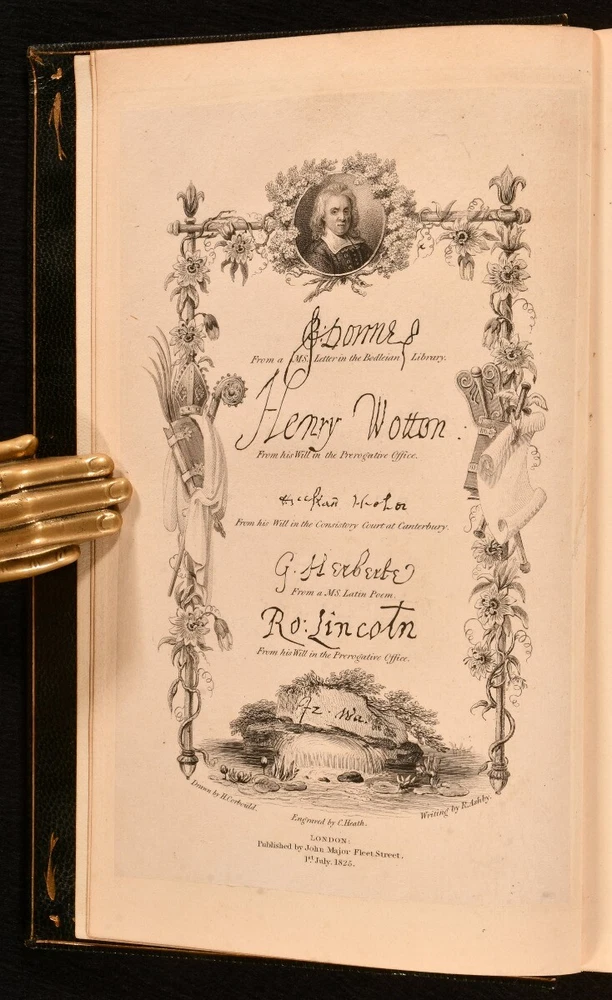 J: Donne
From a MS. Letter in the Bodleian Library.
Henry Wotton.
From his Will in the Prerogative Office.
From his Will in the Consistory Court at Canterbury.
G. Herberte
From a MS. Latin Poem.
Ro: Lincoln
From his Will in the Prerogative Office.
Iz. Wa.
Drawn by H. Corbould.
Engraved by C. Heath.
Writing by R. Ashby.
LONDON:
Published by John Major Fleet Street.
1st July, 1825.